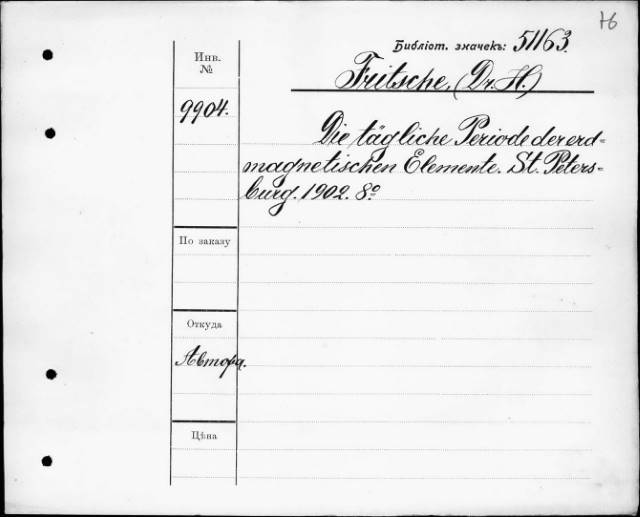 76
Библіот. значекъ: 51163.
Инв.
№
Fritsche, (Dr. H.)
9904.
Die tägliche Periode der erd=
magnetischen Elemente. St. Peters=
burg. 1902. 8º
По заказу
Откуда
Автора.
Цѣна